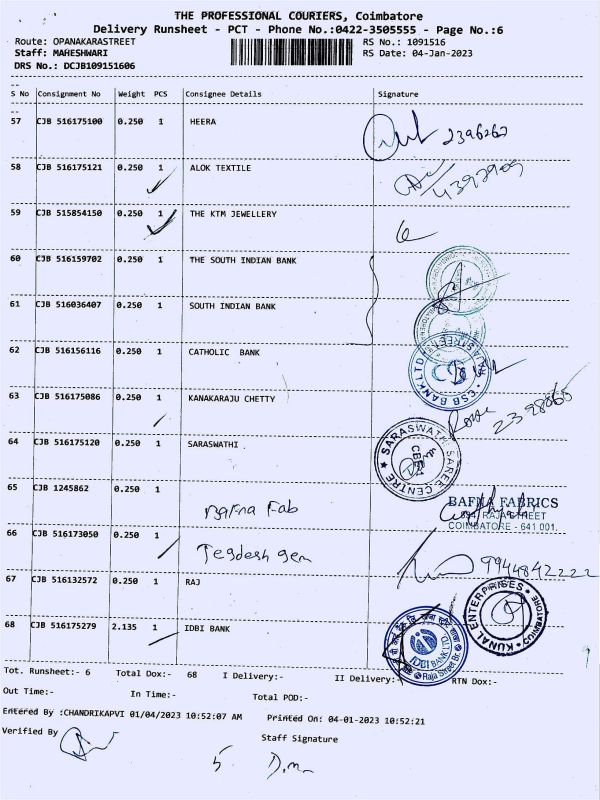 THE PROFESSIONAL COURIERS, Coimbatore
Delivery Runsheet - PCT - Phone No.:0422-3505555 - Page No.:6
Route: OPANAKARASTREET RS No.: 1091516
Staff: MAHESHWARI RS Date: 04-Jan-2023
DRS No.: DCJB109151606
S No Consignment No Weight PCS Consignee Details Signature
57 CJB 516175100 0.250 1 HEERA
2396262
58 CJB 516175121 0.250 1 ALOK TEXTILE
59 CJB 515854150 0.250 1 THE KTM JEWELLERY
60 CJB 516159702 0.250 1 THE SOUTH INDIAN BANK
61 CJB 516036407 0.250 1 SOUTH INDIAN BANK
62 CJB 516156116 0.250 1 CATHOLIC BANK
CSB BANK LTD
63 CJB 516175086 0.250 1 KANAKARAJU CHETTY
64 CJB 516175120 0.250 1 SARASWATHI .
SARASWATHI SAREE CENTRE
CBE-1
65 CJB 1245862 0.250 1
BAFNA FABRICS
RAJA STREET
COIMBATORE - 641 001.
66 CJB 516173050 0.250 1
9944842222
67 CJB 516132572 0.250 1 RAJ
KUNAL ENTERPRISES COIMBATORE
68 CJB 516175279 2.135 1 IDBI BANK
IDBI BANK LTD.
Raja Street Br.
Tot. Runsheet:- 6 Total Dox:- 68 I Delivery:- II Delivery:- RTN Dox:-
Out Time:- In Time:- Total POD:-
Entered By :CHANDRIKAPVI 01/04/2023 10:52:07 AM Printed On: 04-01-2023 10:52:21
Verified By Staff Signature